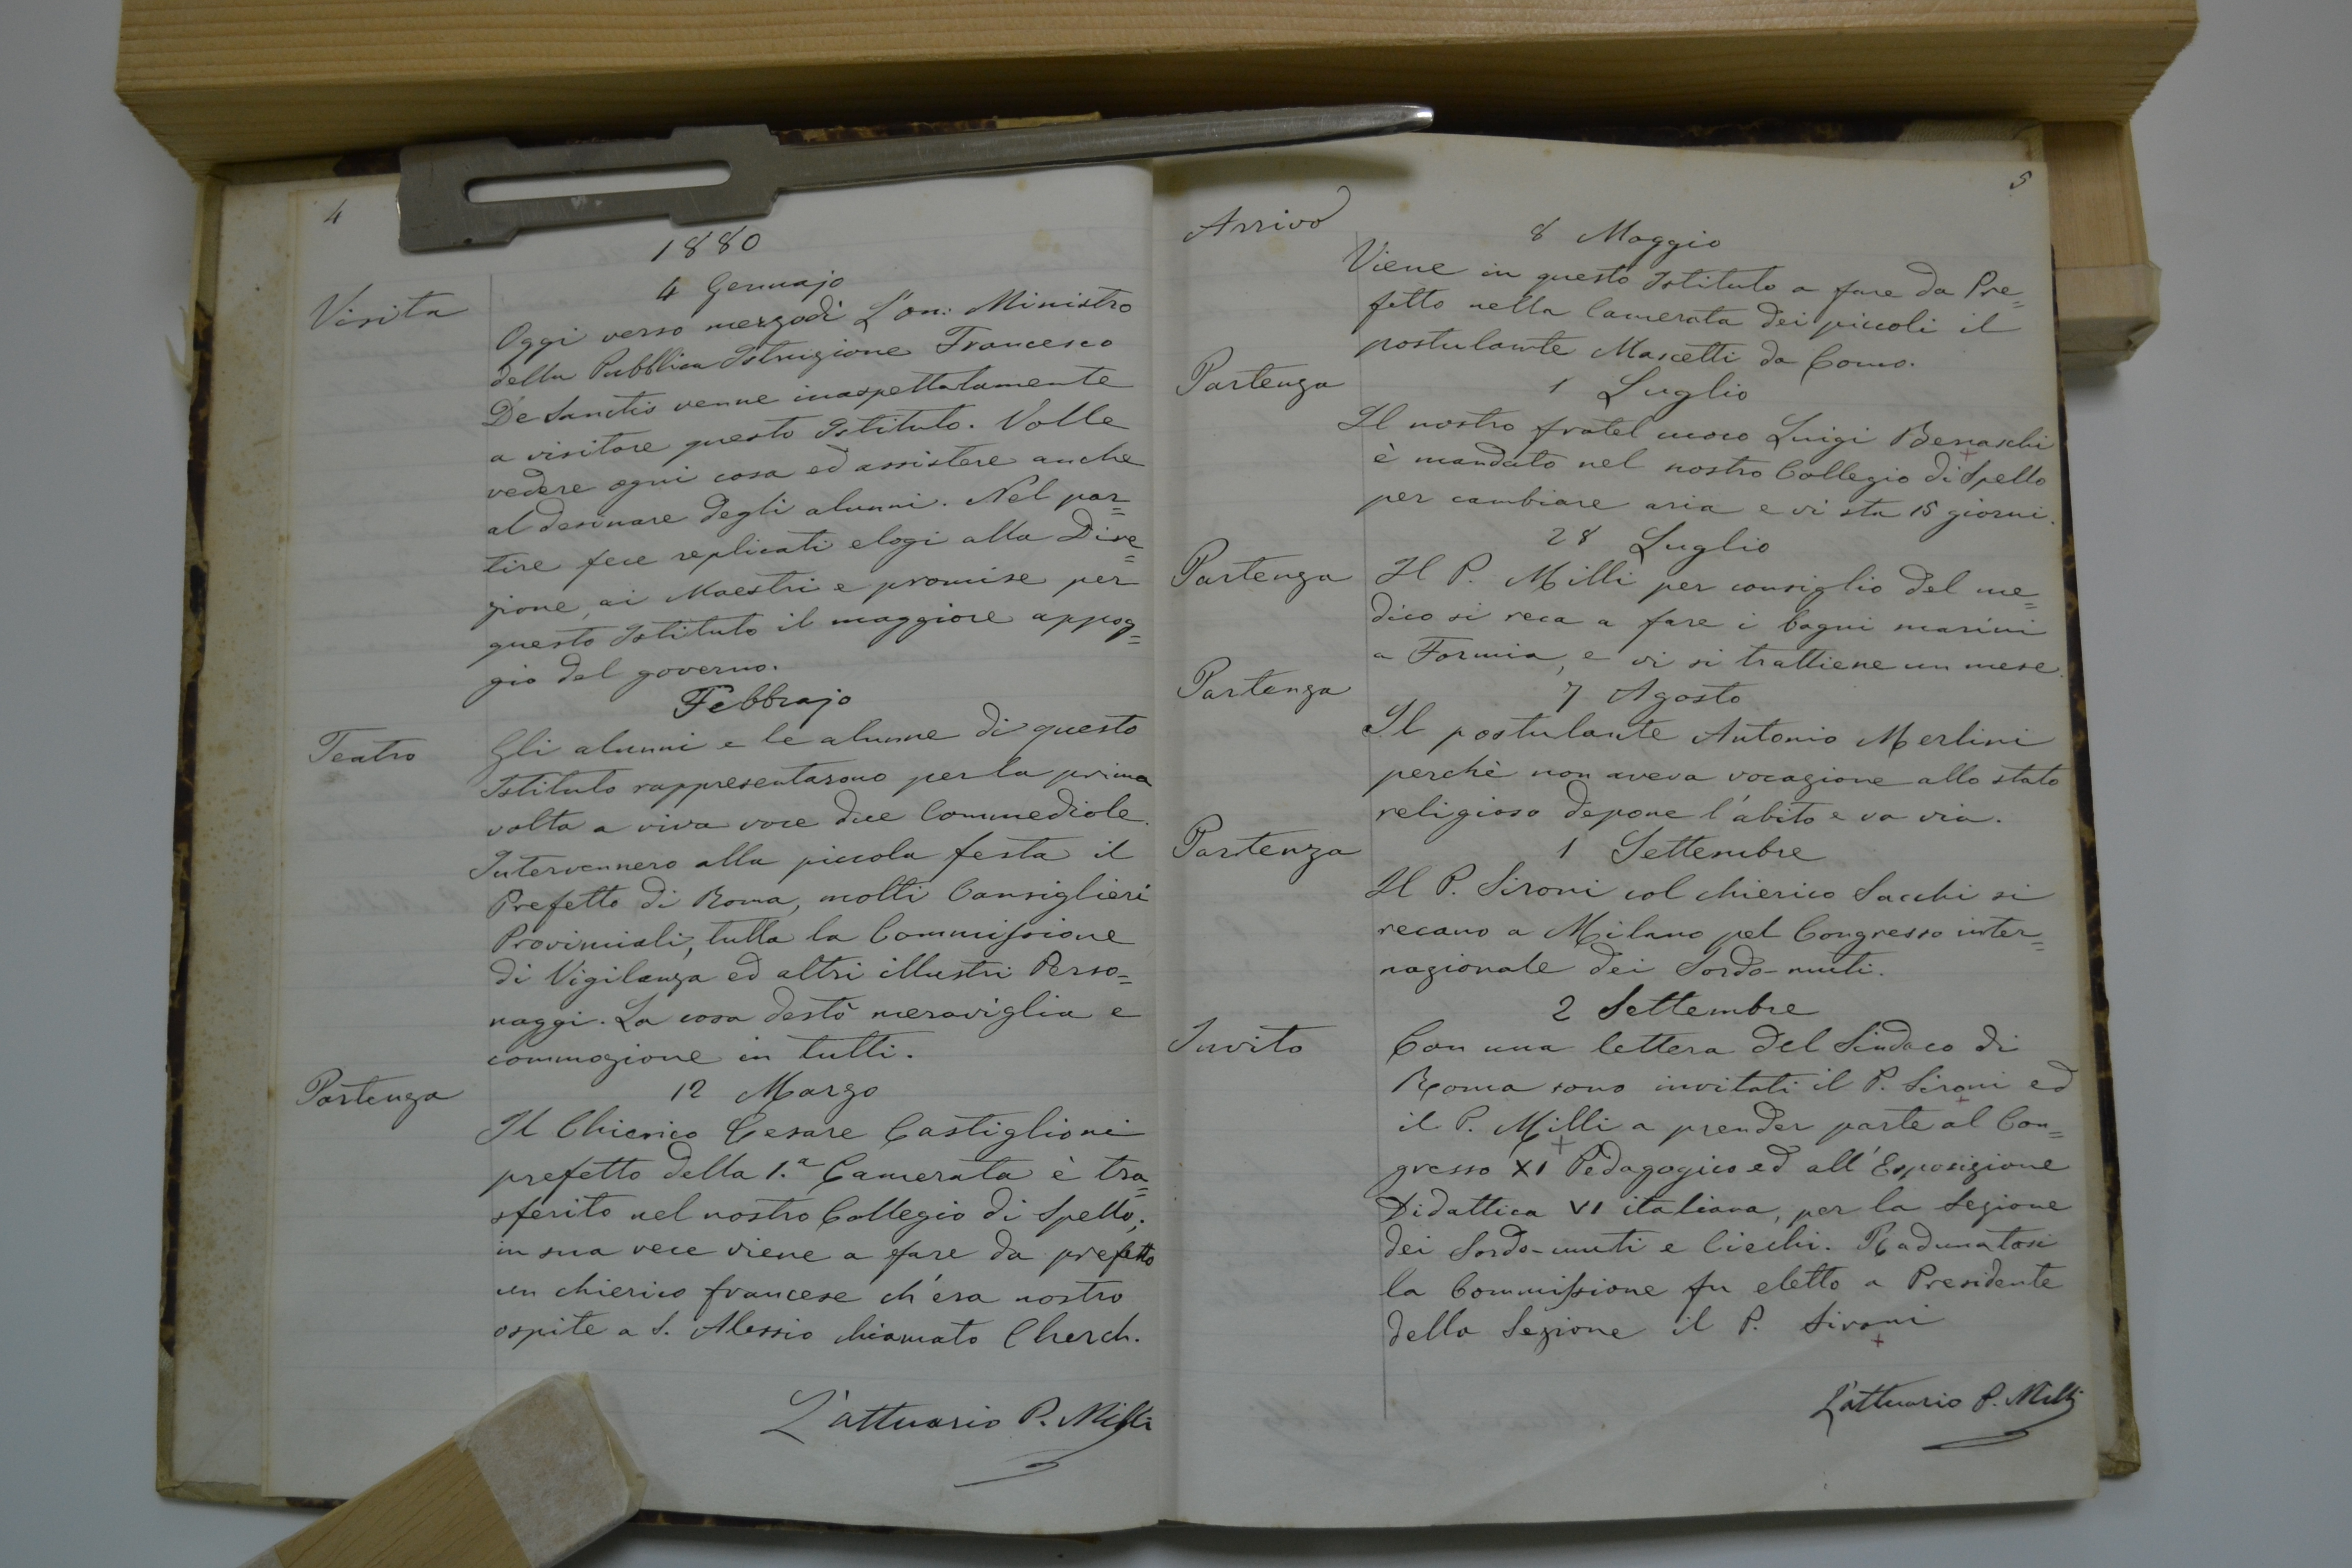 4
1880
4 Gennajo
Visita
Oggi verso mezzodì L'on: Ministro
della Pubblica Istruzione Francesco
De Sanctis venne inaspettatamente
a visitare questo Istituto. Volle
vedere ogni cosa ed assistere anche
al desinare degli alunni. Nel par=
tire fece replicati elogi alla Dire=
zione, ai Maestri e promise per
questo Istituto il maggiore appog=
gio del governo.
Febbrajo
Teatro
Gli alunni e le alunne di questo
Istituto rappresentarono per la prima
volta a viva voce due Commediole.
Intervennero alla piccola festa il
Prefetto di Roma, molti Consiglieri
Provinciali, tutta la Commissione
di Vigilanza ed altri illustri Perso=
naggi. La cosa destò meraviglia e
commozione in tutti.
12 Marzo
Partenza
Il Chierico Cesare Castiglioni
prefetto della 1.a Camerata è tra=
sferito nel nostro Collegio di Spello;
in sua vece viene a fare da prefetto
un chierico francese ch'era nostro
ospite a S. Alessio chiamato Cherch.
L'attuario P. Milli
5
Arrivo
8 Maggio
Viene in questo Istituto a fare da Pre=
fetto nella Camerata dei piccoli il
postulante Mascetti da Como.
Partenza
1 Luglio
Il nostro fratel cuoco Luigi Benaschi
è mandato nel nostro Collegio di Spello
per cambiare aria e vi sta 15 giorni.
28 Luglio
Partenza
Il P. Milli per consiglio del me=
dico si reca a fare i bagni marini
a Formia, e vi si trattiene un mese.
Partenza
7 Agosto
Il postulante Antonio Merlini
perchè non aveva vocazione allo stato
religioso depone l'abito e va via.
Partenza
1 Settembre
Il P. Sironi col chierico Sacchi si
recano a Milano pel Congresso inter=
nazionale dei Sordo-muti.
2 Settembre
Invito
Con una lettera del Sindaco di
Roma sono invitati il P. Sironi ed
il P. Milli a prender parte al Con=
gresso XI Pedagogico ed all'Esposizione
Didattica VI italiana, per la Sezione
dei Sordo-muti e Ciechi. Radunatasi
la Commissione fu eletto a Presidente
della Sezione il P. Sironi
L'attuario P. Milli